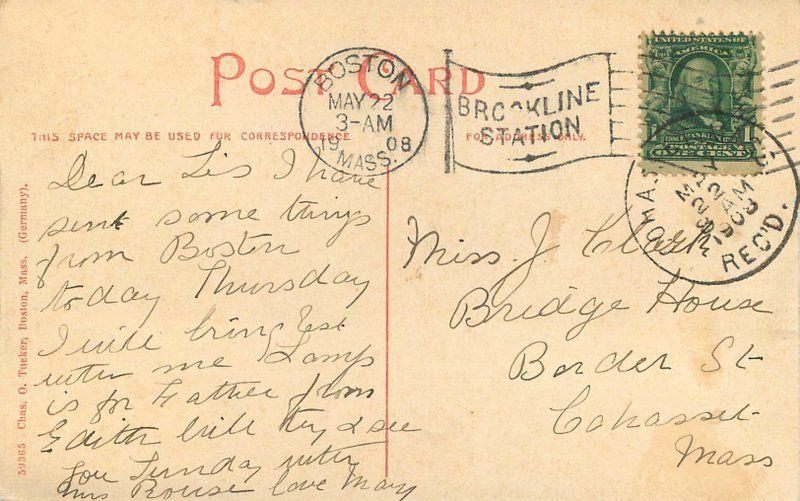 POST CARD
THIS SPACE MAY BE USED FOR CORRESPONDENCE
FOR ADDRESS ONLY.
BOSTON
MAY 22
3-AM
19 08
MASS.
BROOKLINE
STATION
UNITED STATES OF
AMERICA
1 1
POSTAGE
ONE CENT
MASS.
MAY
22
AM
1908
REC'D.
Dear Sis I have
sent some things
from Boston
to day Thursday
I will bring rest
with me Lamp
is for Father from
Edith will try & see
you Sunday with
Mrs Rouse love Mary
Miss. J Clark
Bridge House
Border St
Cohasset
Mass
59365 Chas. O. Tucker, Boston, Mass. (Germany).